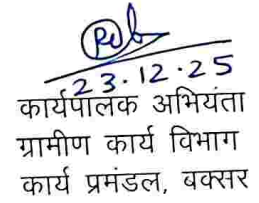 23.12.25
कार्यपालक अभियंता
ग्रामीण कार्य विभाग
कार्य प्रमंडल, बक्सर